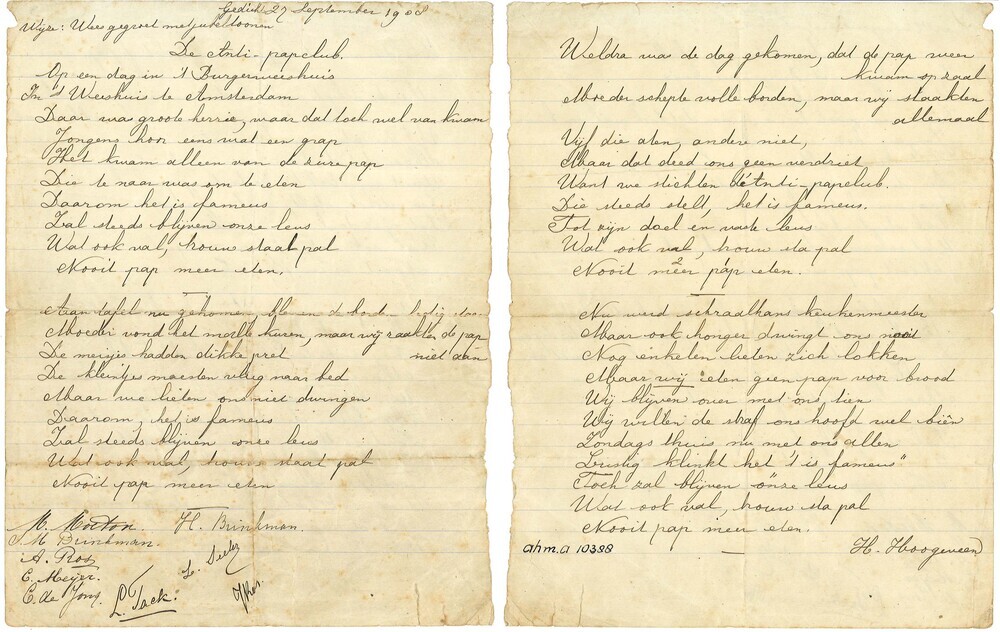 Gedicht 27 September 1908
Wijze: Wees gegroet met jubeltoonen
De Anti-papclub.
Op een dag in 't Burgerweeshuis
In 't Weeshuis te Amsterdam
Daar was groote herrie, waar dat toch wel van kwam
Jongens hoor eens wat een grap
Het kwam alleen van de zure pap
Die te naar was om te eten
Daarom het is fameus
Zal steeds blijven onze leus
Wat ook val, houw staat pal
Nooit pap meer eten.
Aan tafel nu gekomen, bleven de borden ledig staan
Moeder vond het malle kuren, maar wij raakten de pap
niet aan
De meisjes hadden dikke pret
De kleintjes moesten vlug naar bed
Maar we lieten ons niet dwingen
Daarom, het is fameus
Zal steeds blijven onze leus
Wat ook val, houw staat pal
Nooit pap meer eten
M. Mooton. H. Brinkman
M Brinkman.
A. Ros
L. Seelez
C. Meijer.
C. de Jong.
L. Tack.
Weldra was de dag gekomen, dat de pap weer
kwam op zaal
Moeder schepte volle borden, maar wij staakten
allemaal
Vijf die aten, andere niet,
Maar dat deed ons geen verdriet
Want we stichten de Anti-papclub.
Die steeds stelt, het is fameus.
Tot zijn doel en vaste leus
Wat ook val, houw sta pal
Nooit meer pap eten.
2
Nu werd schraalhans keukenmeester
Maar ook honger dwingt ons nooit
Nog enkelen lieten zich lokken
Maar wij eten geen pap voor brood
Wij blijven over met ons tien
Wij willen de straf ons hoofd wel biên
Zondags thuis nu met ons allen
Lustig klinkt het "'t is fameus"
Toch zal blijven onze leus
Wat ook val, houw sta pal
Nooit pap meer eten.
ahm.a 10388
H. Hoogeveen